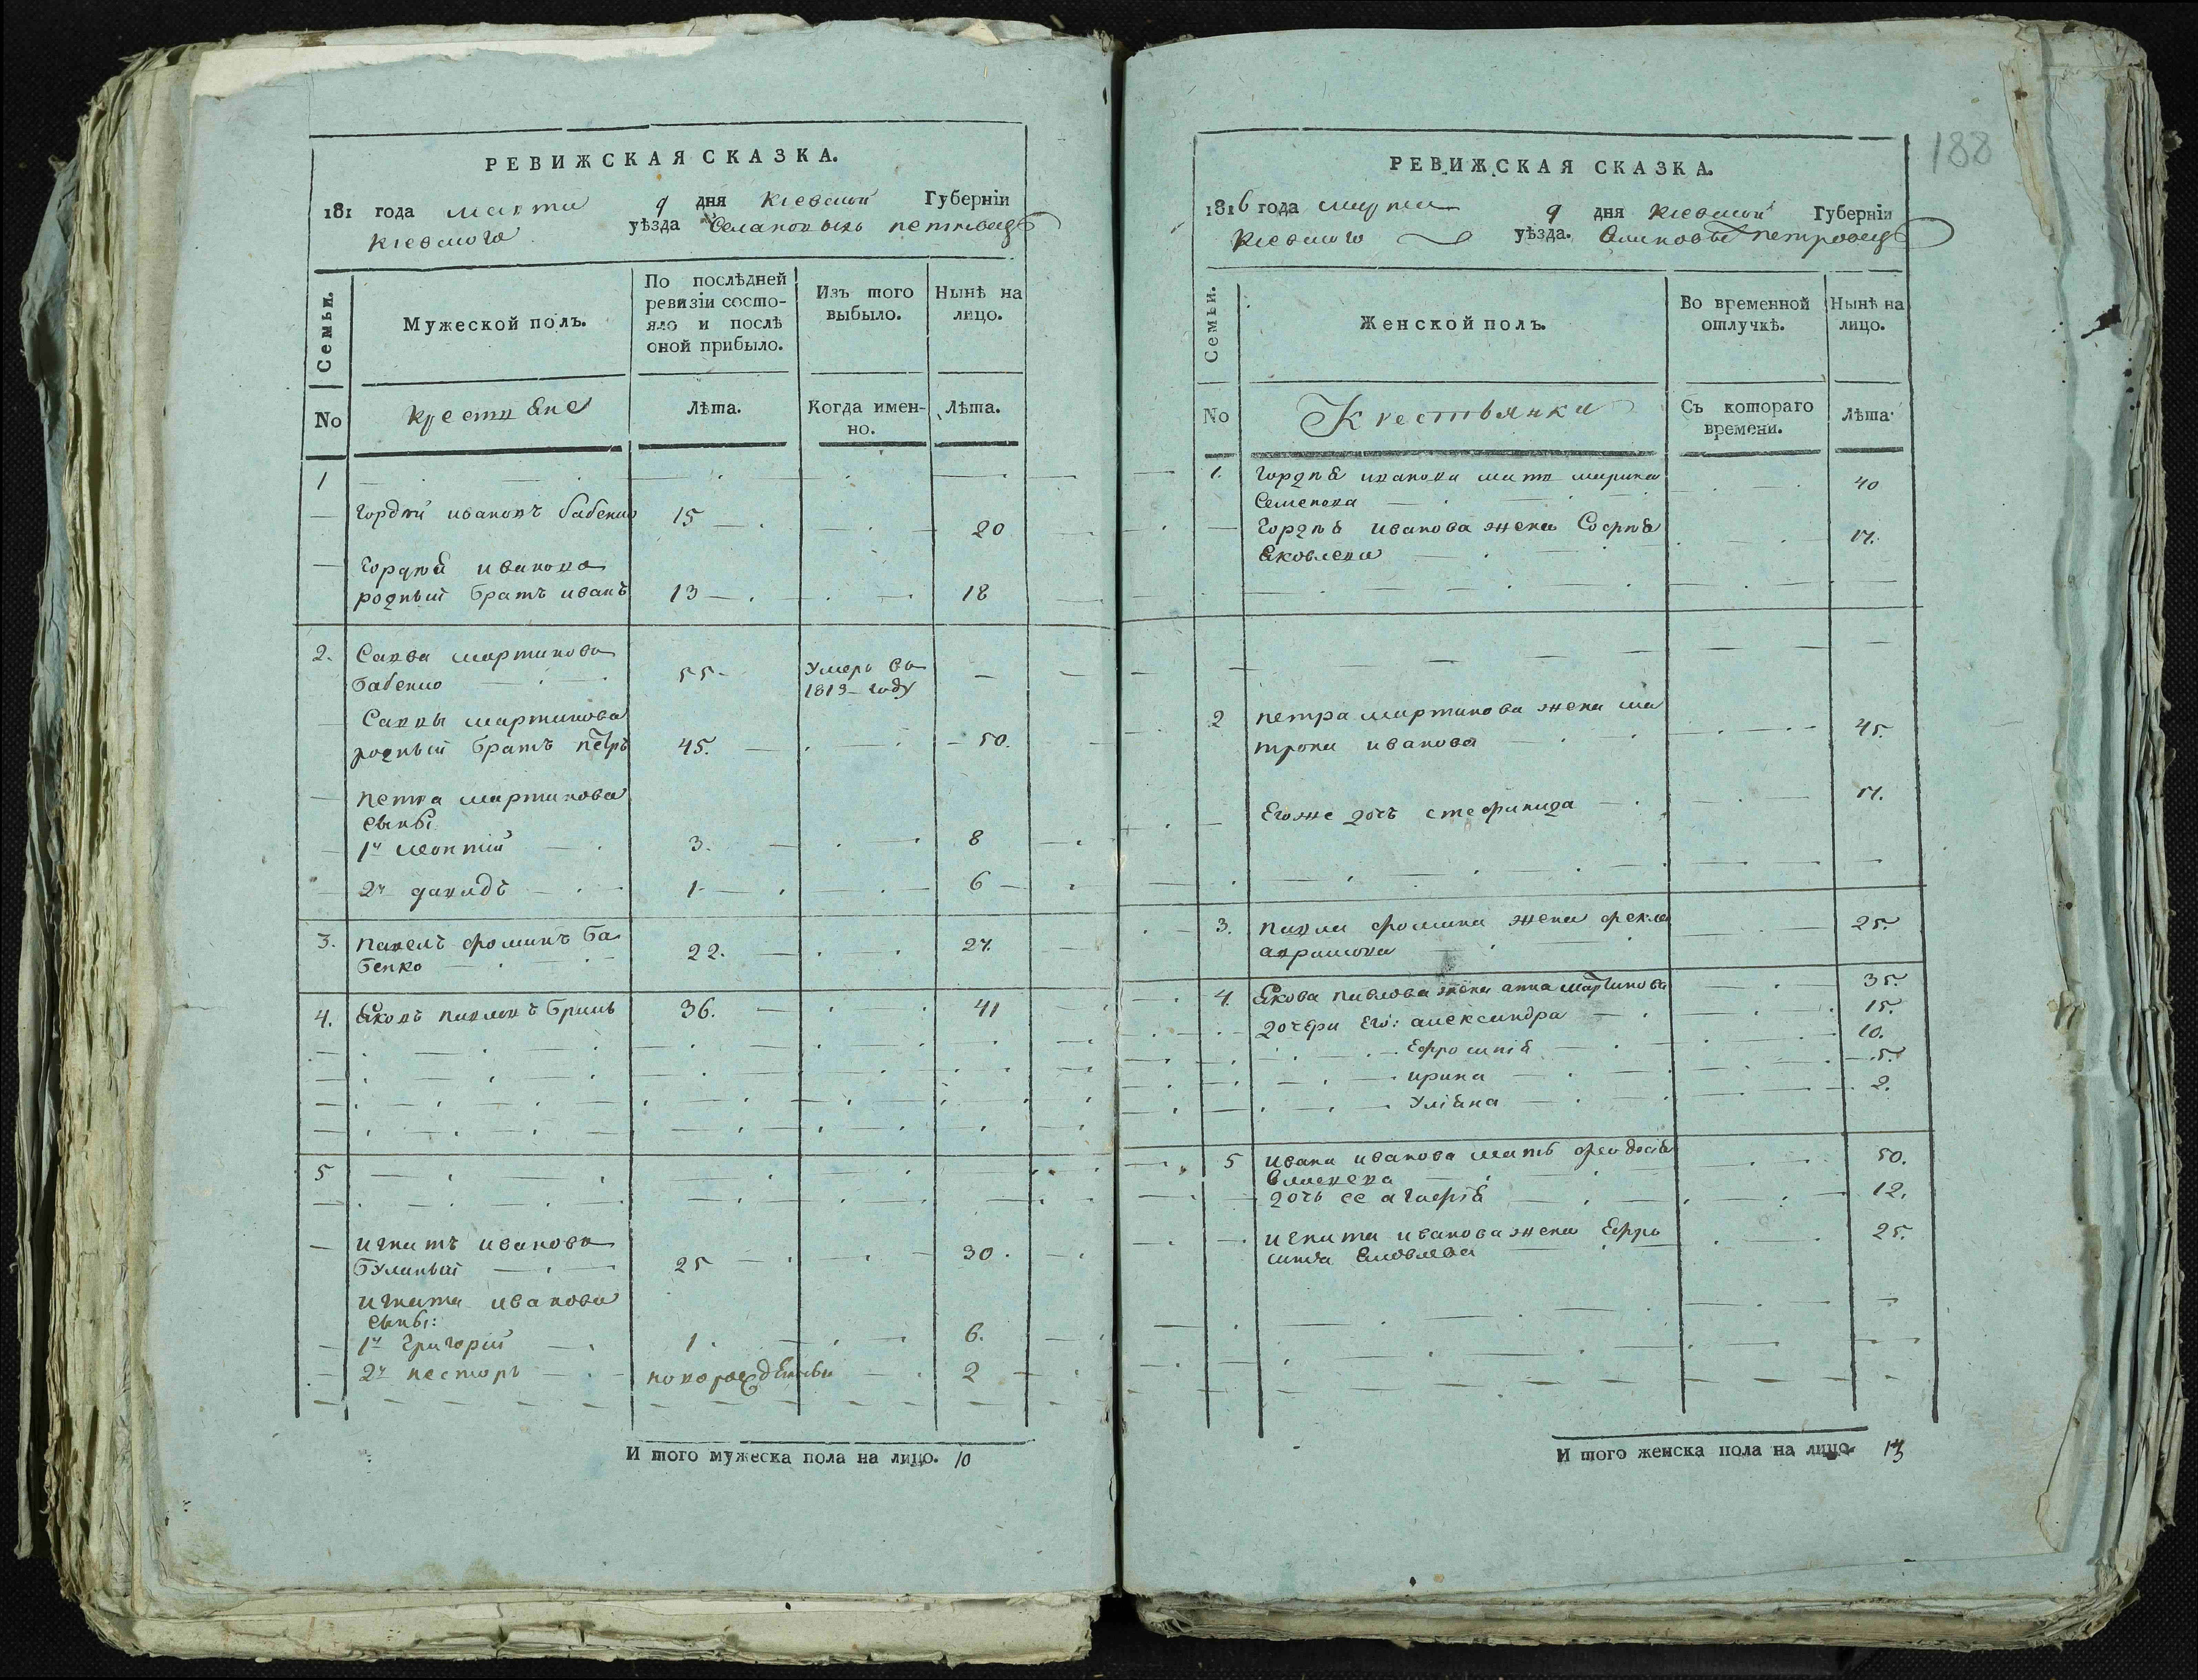 РЕВИЖСКАЯ СКАЗКА.
181 года марта 9 дня Киевской Губерніи
Киевского уѣзда Села новыхъ петровецъ
Семьи.
Мужеской полъ.
По послѣдней ревизіи состояло и послѣ оной прибыло.
Изъ того выбыло.
Нынѣ на лицо.
No
Крестяне
Лѣта.
Когда именно.
Лѣта.
1
Гордѣй ивановъ бабенко 15 20
Гордѣя иванова
родный братъ иванъ 13 18
2. Савва мартинова
бабенко 55 Умеръ въ
1813 году
Саввы мартинова
родный братъ петръ 45. 50.
петра мартинова
сыны
1й леонтій 3. 8
2й давидъ 1 6
3. павелъ фоминъ ба
бенко 22. 27.
4. Яковъ павловъ 36. 41
5
игнатъ иванова
25 30.
игната иванова
сыны:
1й григорій 1. 6.
2й несторъ новорожденный 2
И того мужеска пола на лицо. 10
188
РЕВИЖСКАЯ СКАЗКА.
1816 года марта 9 дня Киевской Губерніи
Киевского уѣзда. Села новые петровецъ
Семьи.
Женской полъ.
Во временной отлучкѣ.
Нынѣ на лицо.
No
Крестьянки
Съ котораго времени.
Лѣта
1. Гордѣя иванова мать марина
Семенова 40
Гордѣя иванова жена Софія
Яковлева 17.
2 петра мартинова жена ма
трона иванова 45.
Егоже дочь стефанида 17.
3. павла фомина жена фекла
аврамова 25.
4. Якова павлова жена анна мартинова 35.
дочери Его: александра 15.
Ефросинія 10.
ирина 5.
Уліяна 2.
5 ивана иванова мать феодосія
50.
дочь ее агафія 12.
игната иванова жена Ефро
синія Яковлева 25.
И того женска пола на лицо. 13